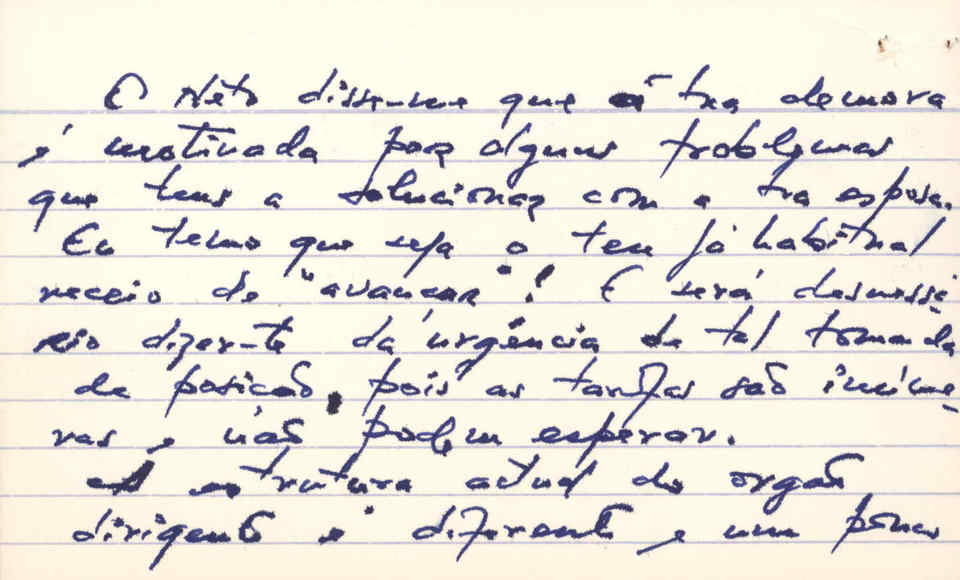 O Néto disse-me que a tua demora
é motivada por alguns problemas
que tens a solucionar com a tua esposa.
Eu temo que seja o teu já habitual
receio de "avançar"! E será desnessá-
rio dizer-te da urgência de tal tomada
de posição, pois as tarefas são inúme-
ras e não podem esperar.
A estrutura actual do orgão
dirigente é diferente e um pouco